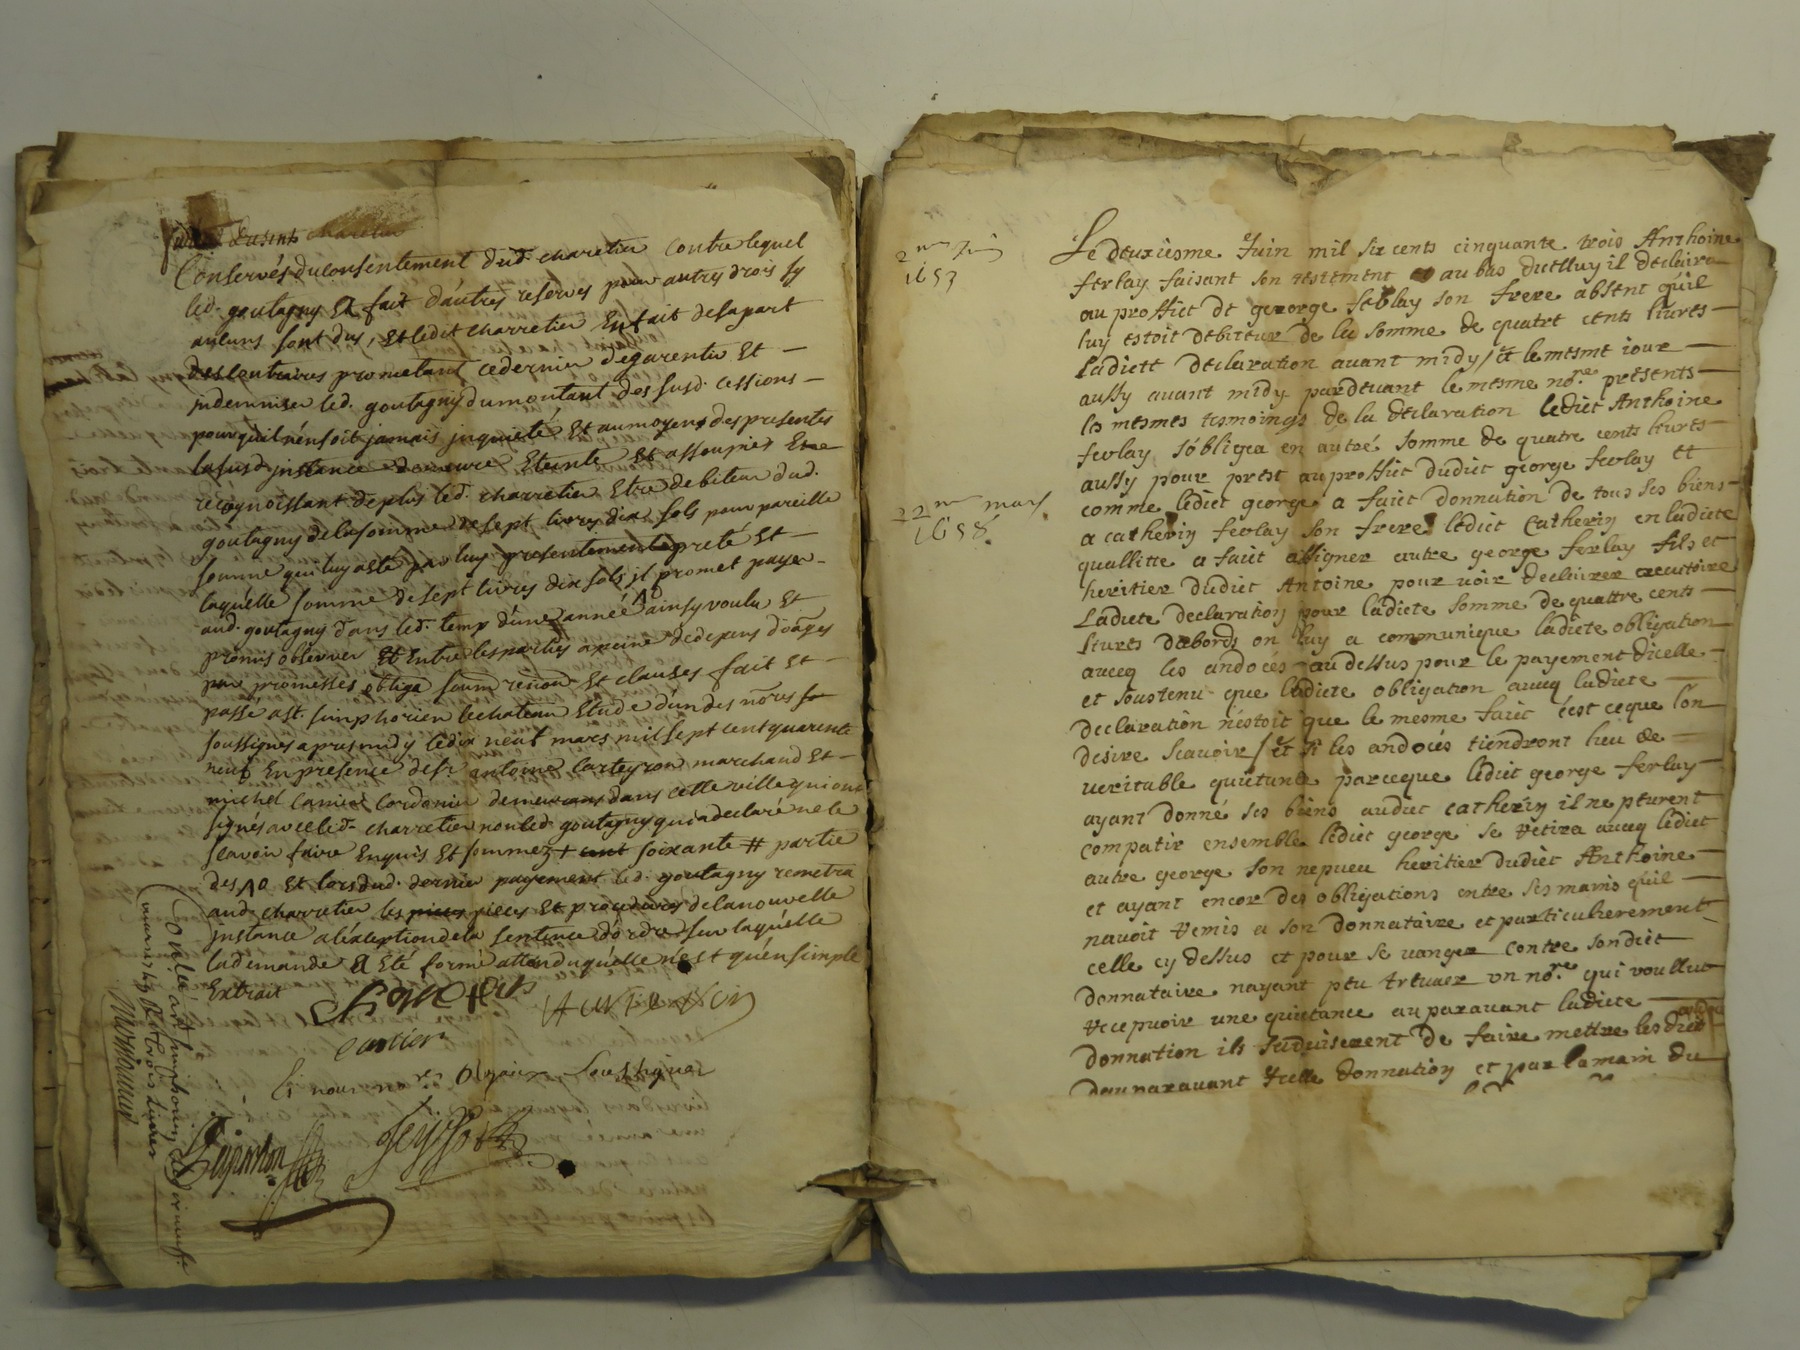 Conservés du consentement dud. charetier contre lequel
led. goutagny Et fait d'autres reserves pour autres drois sy
aucuns sont dus, Et ledit charretier En fait de sa part
des contraires prometant ce dernier de garentir Et
jndemniser led. goutagny du montant des susd. cessions
pour quil n'en soit jamais jnquieté Et au moyen des presentes
la susd. jnstance demeure Eteinte Et assoupie
recognoissant de plus led. charretier Etre debiteur aud.
goutagny de la somme de sept livres dix sols pour pareille
somme qui luy a eté par luy presentement preté Et
laquelle somme de sept livres dix sols il promet payer
aud. goutagny dans led. temp d'une année ainsy voulu Et
promis observer Et Entre les parties a peine de depens d'oages
par promesses obliga soum renon Et clauses fait Et
passé a st. simphorien le chateau Etude d'un des nores
soussignes apres midy le dix neuf mars mil sept cent quarente
neuf En presence de sr. antoine carteyron marchand Et
michel Camier Cordonier demeurans dans cette ville qui ont
signés avec led. charretier non led. goutagny qui a declaré ne le
scavoir faire Enquis Et sommez + cent soixante # partie
des Et lors dud. dernier payement led. goutagny remetra
aud. charretier les pieces Et procedures de la nouvelle
jnstance a l'exception de la sentence d'ordre sur laquelle
la demande a Eté formé attendu qu'elle n'est qu'en simple
Extrait
Camier
Et nous nores Royaux Soussignes
2me Juin
1653
Le deuxiesme Juin mil six cents cinquante trois Anthoine
ferlay faisant son testement au bas dicelluy il declaira
au proffict de george ferlay son frere absent quil
luy estoit debiteur de la somme de quatre cents livres
Ladicte declaration avant midy / et le mesme iour
aussy avant midy pardevant le mesme nore. presents
les mesmes tesmoings de la declaration ledict Anthoine
ferlay s'obligea en autre somme de quatre cents livres
aussy pour prest au proffict dudict george ferlay et
comme ledict george a faict donnation de tous ses biens
22me mars
1658
a catherin ferlay son frere ledict Catherin en ladicte
quallitte a faict assigner autre george ferlay fils et
heritier dudict Antoine pour voir declairer executoire
Ladicte declaration pour ladicte somme de quattre cents
livres Dabords on luy a communique ladicte obligation
avecq les andocés au dessus pour le payement dicelle
et soustenu que ladicte obligation avecq ladicte
declaration n'estoit que le mesme faict c'est ce que l'on
desire scavoir / et si les andocés tiendront lieu de
veritable quittance parceque ledict george ferlay
ayant donné ses biens audict catherin il ne peurent
compatir ensemble ledict george se retira avecq ledict
autre george son nepveu heritier dudict Anthoine
et ayant encor des obligations entre ses mains quil
navoit remis a son donnataire et particulierement
celle cy dessus et pour se vanger contre sondict
donnataire nayant peu treuver un nore. qui voullut
recepvoir une quittance auparavant ladicte
donnation ils s'aduiserent de faire mettre lesdict
dauparavant icelle donnation et par la main du